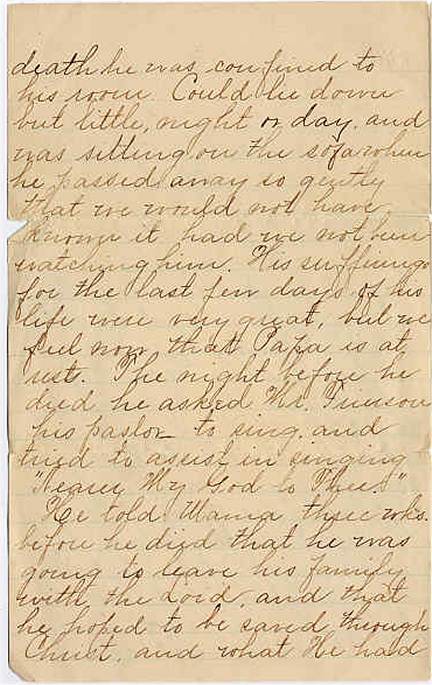 death he was confined to
his room. Could lie down
but little, night or day. and
was sitting on the sofa when
he passed away so gently
that we would not have
known it had we not been
watching him. His sufferings
for the last few days of his
life were very great, but we
feel now that Papa is at
rest. The night before he
died he asked Mr.
his pastor to sing. and
tried to assist in singing
"Nearer My God to Thee."
He told Mama three wks.
before he died that he was
going to leave his family
with the Lord, and that
he hoped to be saved through
Christ, and what He had